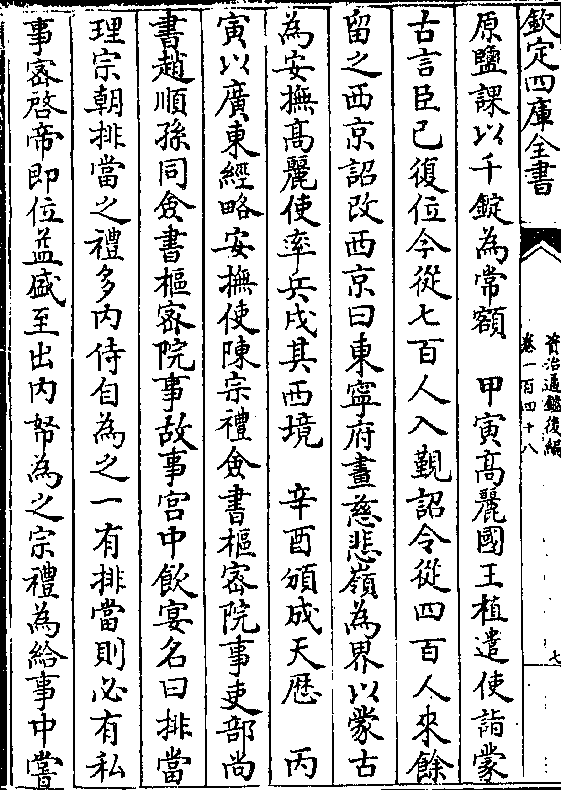 欽定四庫全書
資治通鑑後編
卷一百四十八
七
原鹽課以千錠為常額　甲寅高麗國王植遣使詣蒙
古言臣已復位今從七百人入覲詔令從四百人來餘
留之西京詔改西京曰東寧府畫慈悲嶺為界以蒙古
為安撫高麗使率兵戍其西境　辛酉頒成天厯　丙
寅以廣東經略安撫使陳宗禮僉書樞宻院事吏部尚
書趙順孫同僉書樞宻院事故事宫中飲宴名曰排當
理宗朝排當之禮多内侍自為之一有排當則必有私
事宻啓帝即位益盛至出内帑為之宗禮為給事中嘗